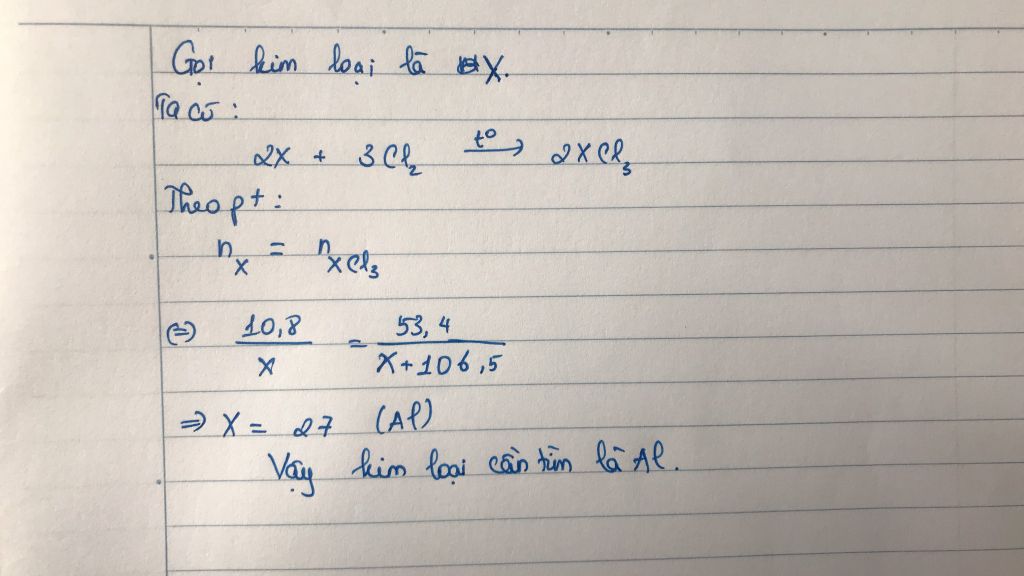 Gọi kim loại là X.
Ta có:
2X + 3Cl₂ →(t°) 2XCl₃
Theo pt:
n_X = n_XCl₃
(=) 10,8/X = 53,4/(X+106,5)
⇒ X = 27 (Al)
Vậy kim loại cần tìm là Al.